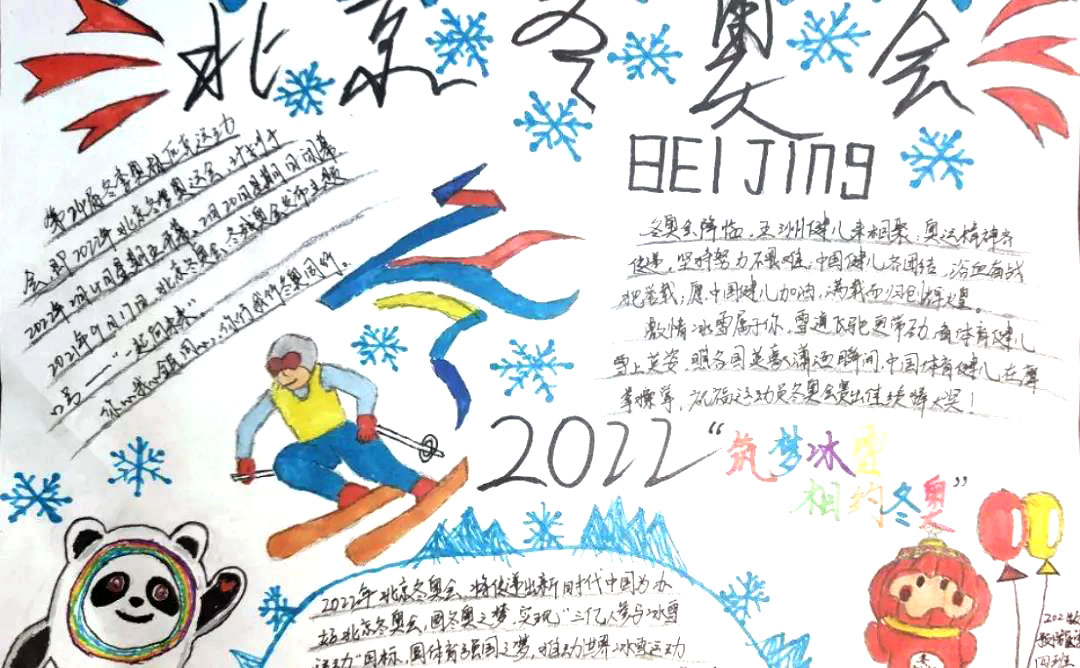 北京冬奥会
BEIJING
第24届冬季奥林匹克运动
会,即2022年北京冬季奥运会,计划于
2022年2月4日星期五开幕,2月20日星期日闭幕
2021年9月17日,北京冬奥会、冬残奥会发布主题
口号——“一起向未来”。
冬奥会降临,五洲健儿来相聚,奥运精神齐
传递,坚持努力不畏难,中国健儿齐团结,浴血奋战
把誉载,愿中国健儿加油,满载而归创辉煌。
激情冰雪属于你,雪道飞驰更带动,体育健儿
雪上英姿,瞬间,中国体育健儿在赛
祝福运动员冬奥会赛出佳绩
2022
“筑梦冰雪
相约冬奥”
2022年北京冬奥会,将传递出新时代中国为办
北京冬奥会,圆冬奥之梦,实现“三亿人参与冰雪
运动”目标,圆体育强国之梦,推动世界冰雪运动
四班